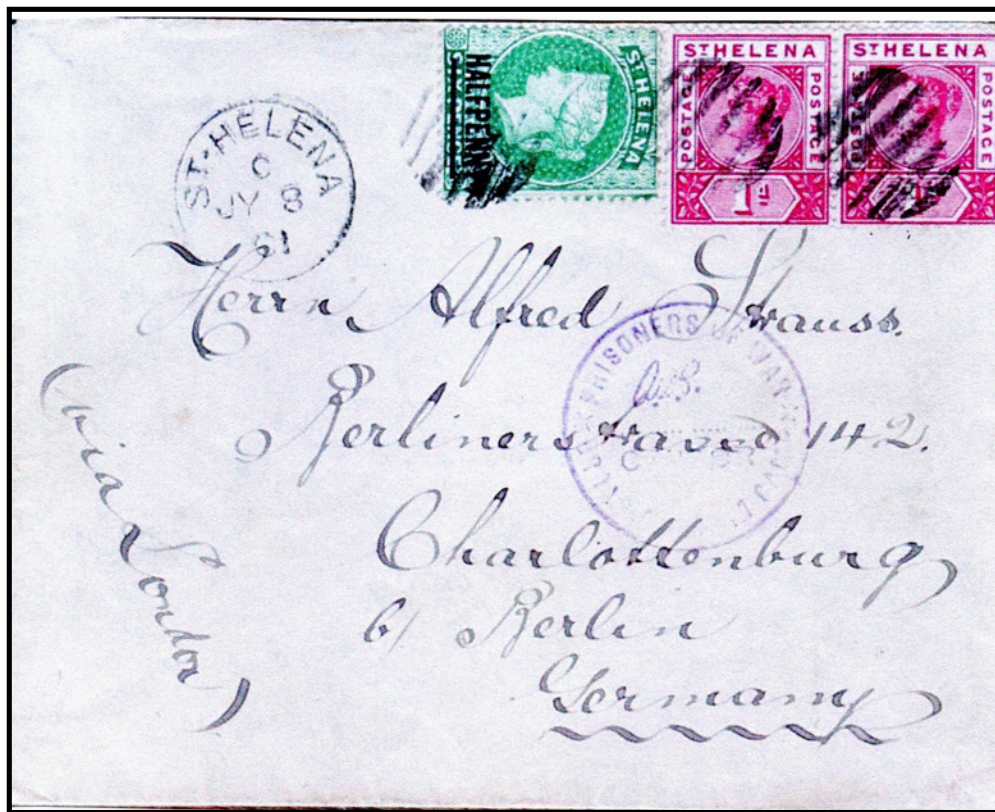 HALFPENNY
ST HELENA
ST HELENA
POSTAGE
POSTAGE
1d
ST HELENA
POSTAGE
POSTAGE
ST. HELENA
C
JY 8
61
PRISONERS OF WAR
Herrn Alfred Strauss.
Berliner 142.
Charlottenburg
b/ Berlin
Germany
(via London)